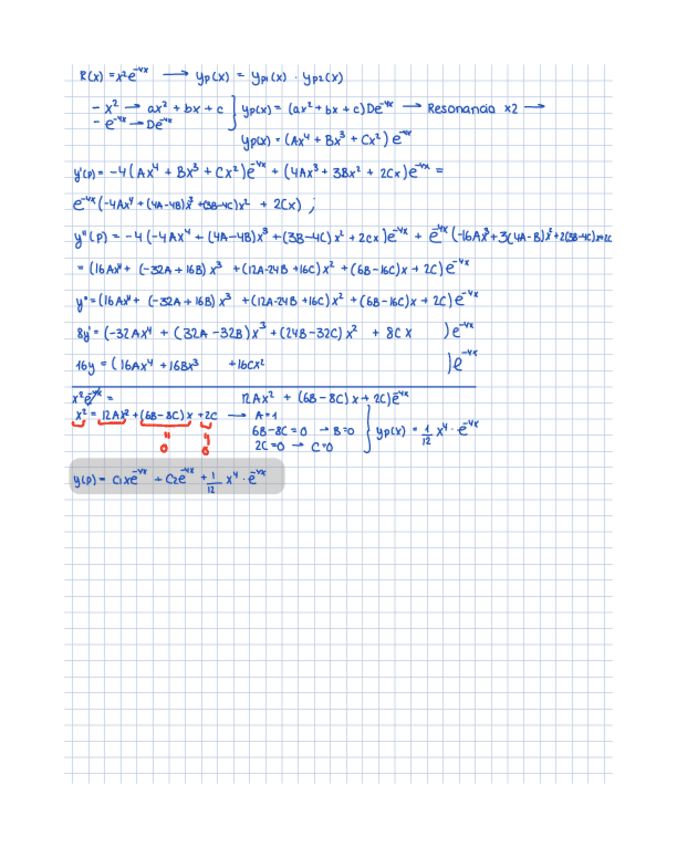 R(x) = x²e⁻⁴ˣ → yp(x) = yp1(x) · yp2(x)
- x² → ax² + bx + c } yp(x) = (ax² + bx + c) De⁻⁴ˣ → Resonancia x2 →
- e⁻⁴ˣ → De⁻⁴ˣ
yp(x) = (Ax⁴ + Bx³ + Cx²) e⁻⁴ˣ
y'(p) = -4 (Ax⁴ + Bx³ + Cx²) e⁻⁴ˣ + (4Ax³ + 3Bx² + 2Cx) e⁻⁴ˣ =
e⁻⁴ˣ (-4Ax⁴ + (4A-4B)x³ + (3B-4C)x² + 2Cx) ;
y''(p) = -4 (-4Ax⁴ + (4A-4B)x³ + (3B-4C)x² + 2Cx) e⁻⁴ˣ + e⁻⁴ˣ (-16Ax³ + 3(4A-B)x² + 2(3B-4C)x + 2C
= (16Ax⁴ + (-32A + 16B) x³ + (12A-24B + 16C) x² + (6B-16C) x + 2C) e⁻⁴ˣ
y'' = (16Ax⁴ + (-32A + 16B) x³ + (12A-24B + 16C) x² + (6B-16C) x + 2C) e⁻⁴ˣ
8y' = (-32Ax⁴ + (32A - 32B) x³ + (24B - 32C) x² + 8Cx ) e⁻⁴ˣ
16y = (16Ax⁴ + 16Bx³ + 16Cx² ) e⁻⁴ˣ
x²e⁻⁴ˣ = 12Ax² + (6B - 8C) x + 2C) e⁻⁴ˣ
x² = 12Ax² + (6B - 8C) x + 2C → A=1
6B-8C = 0 → B=0 } yp(x) = 1/12 x⁴ · e⁻⁴ˣ
" "
0 0
2C = 0 → C=0
y(p) = C1xe⁻⁴ˣ + C2e⁻⁴ˣ + 1/12 x⁴ · e⁻⁴ˣ